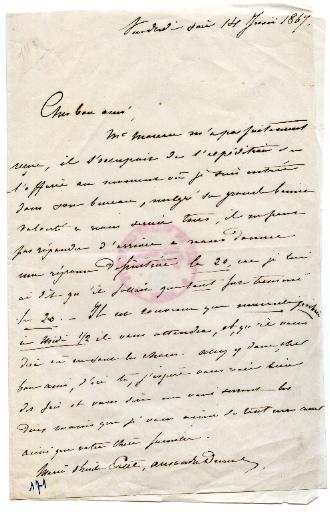 Vendredi soir 14 Juin 1867.
Cher bon ami,
Mr Moreau m'a parfaitement
reçue, il s'occupait de l'expédition de
l'affaire au moment où je suis entrée
dans son bureau, malgré sa grande bonne
volonté à nous servir tous, il ne peut
pas répondre d'arriver à nous donner
une réponse définitive le 20, car je lui
ai dit qu'il fallait que tout fut terminé
le 20. — Il est convenu que mercredi prochain
à midi 1/2 il vous attendra, et qu'il vous
dira où en sont les choses. allez y donc, cher
bon ami, d'ici là, j'espère vous voir bien
des fois et vous dire en vous serrant les
deux mains que je vous aime de tout mon cœur
ainsi que votre chère famille.
171